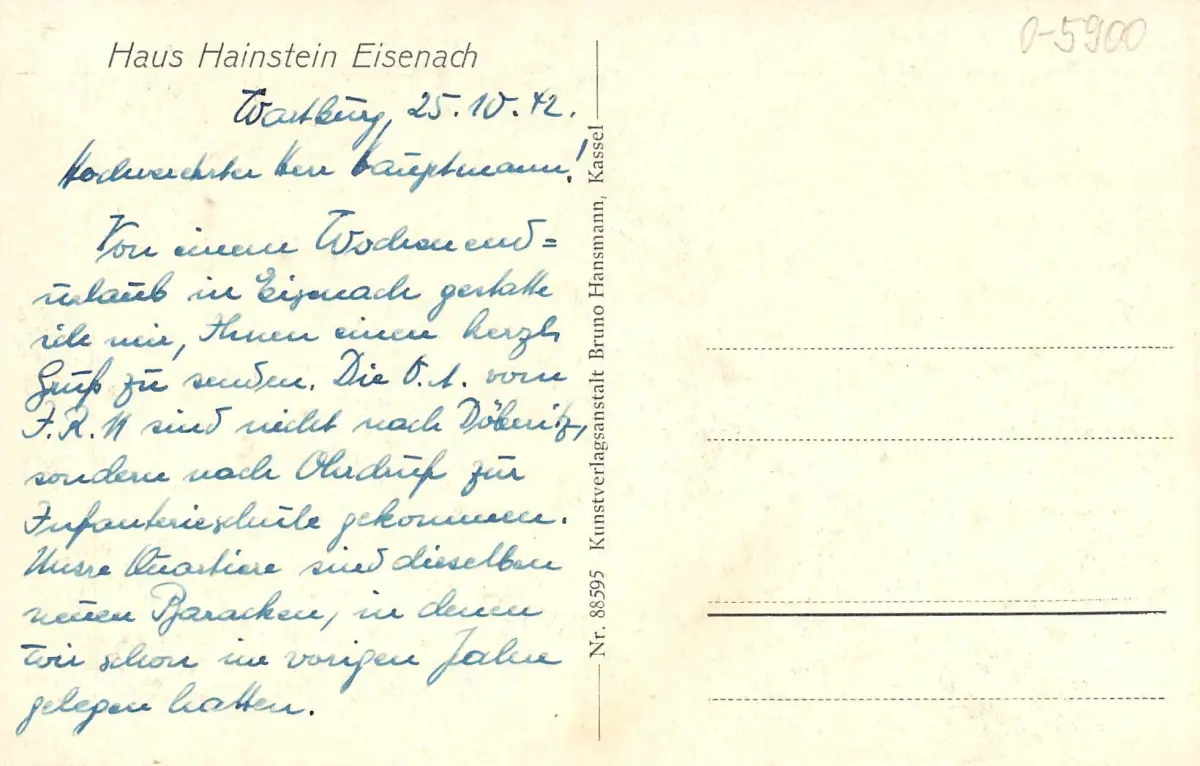 Haus Hainstein Eisenach
0-5900
Wartburg, 25.10.42.
Hochverehrter Herr Hauptmann!
Von einem Wochenend=
urlaub in Eisenach gestatte
ich mir, Ihnen einen herzl.
Gruß zu senden. Die O.A. vom
I.R. 11 sind nicht nach Döberitz,
sondern nach Ohrdruf zur
Infanterieschule gekommen.
Unsre Quartiere sind dieselben
neuen Baracken, in denen
wir schon im vorigen Jahre
gelegen hatten.
Nr. 88595 Kunstverlagsanstalt Bruno Hansmann, Kassel